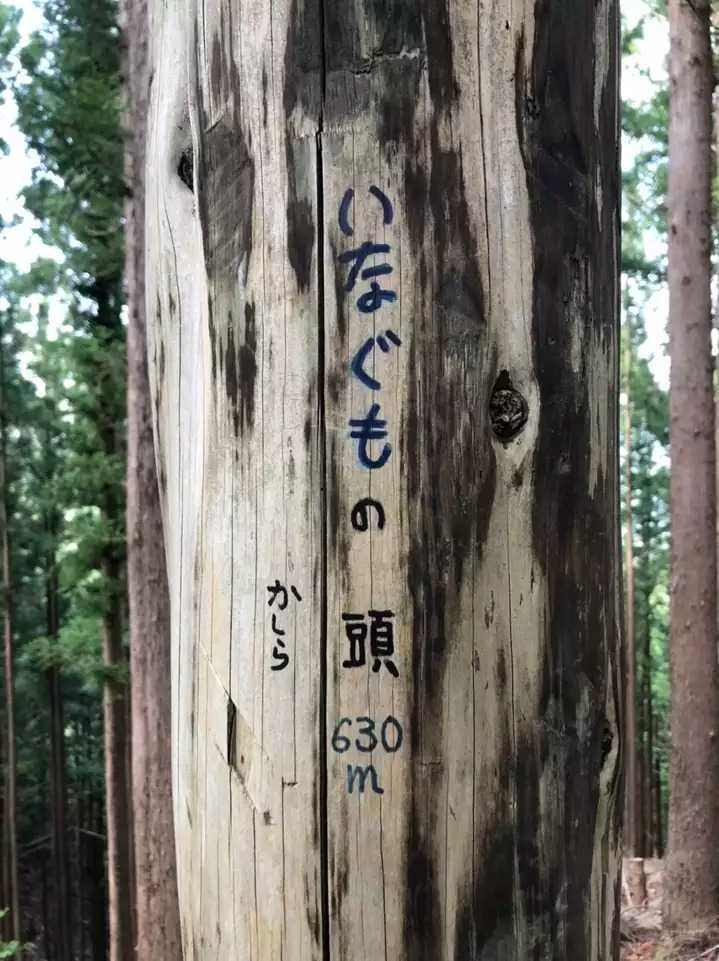 いなぐもの頭
630
m
かしら